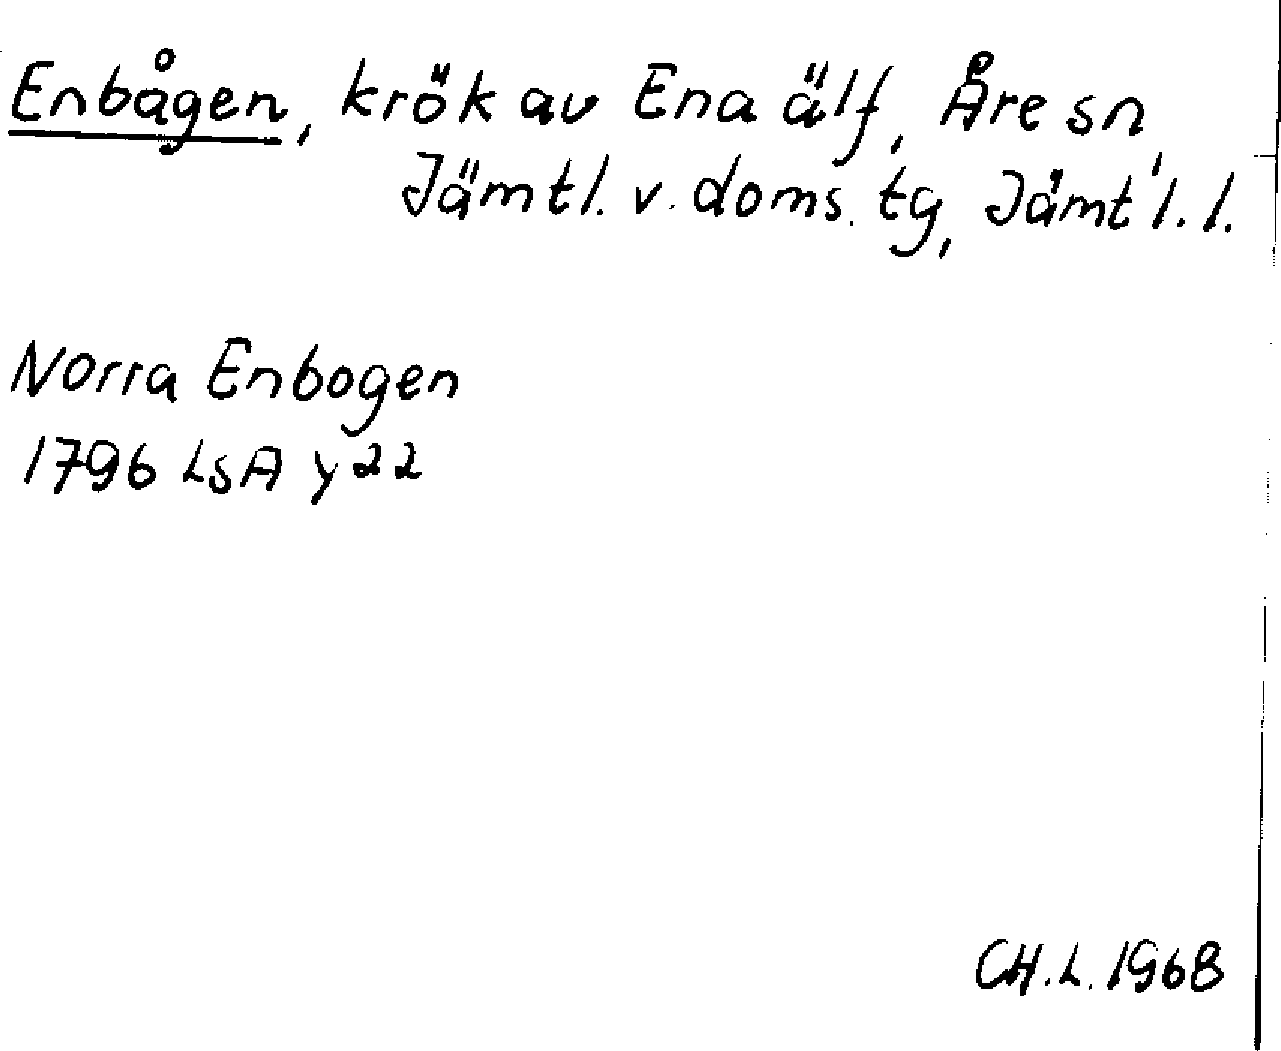 Enbågen, krök av Ena älf, Åre sn,
Jämtl. v. doms. tg, Jämtl. l.
Norra Enbogen
1796 LSA y22
CH.L. 1968